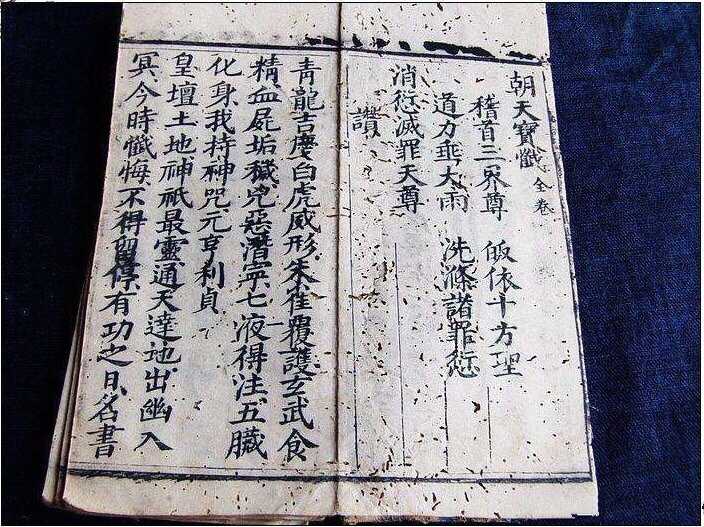 朝天寶懺 全卷
稽首三界尊 皈依十方聖
道力垂大雨 洗滌諸罪愆
消愆滅罪天尊
讚
青龍吉慶白虎威形朱雀覆護玄武食
精血屍垢穢兇惡潛寧七液得注五臟
化身我持神咒元亨利貞
皇壇土地神祇最靈通天達地出幽入
冥今時懺悔不得留停有功之日名書